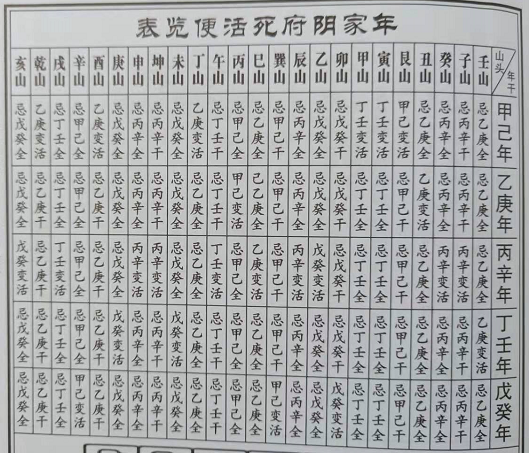 年家阴府死活便览表
年干 山头 壬山 子山 癸山 丑山 艮山 寅山 甲山 卯山 乙山 辰山 巽山 巳山 丙山 午山 丁山 未山 坤山 申山 庚山 酉山 辛山 戌山 乾山 亥山
甲己年 忌乙庚全 忌丙辛干 忌丙辛全 忌乙庚全 甲己变活 丁壬变活 丁壬变活 忌戊癸干 忌戊癸全 忌丙辛全 忌甲己干 忌乙庚全 忌甲己全 忌丁壬干 乙庚变活 忌戊癸全 忌丙辛干 忌丙辛全 忌戊癸全 乙庚变活 忌甲己全 忌丁壬全 乙庚变活 忌戊癸全
乙庚年 忌乙庚全 忌丙辛干 忌丙辛全 乙庚变活 忌甲己干 忌丁壬全 忌丁壬全 忌戊癸干 忌戊癸全 忌丙辛全 忌甲己干 忌乙庚全 甲己变活 忌丁壬干 忌乙庚全 忌戊癸全 忌丙辛干 忌丙辛全 忌戊癸全 忌乙庚干 忌甲己全 忌丁壬全 忌乙庚干 忌戊癸全
丙辛年 忌乙庚全 丙辛变活 丙辛变活 忌乙庚全 忌甲己干 忌丁壬全 忌丁壬全 忌戊癸干 戊癸变活 丙辛变活 忌甲己干 乙庚变活 忌甲己全 丁壬变活 忌乙庚全 忌戊癸全 丙辛变活 丙辛变活 忌戊癸全 忌乙庚干 忌甲己全 丁壬变活 忌乙庚干 戊癸变活
丁壬年 乙庚变活 忌丙辛干 忌丙辛全 忌乙庚全 忌甲己干 忌丁壬全 忌丁壬全 忌戊癸干 忌戊癸全 忌丙辛全 忌甲己干 忌乙庚全 忌甲己全 忌丁壬干 忌乙庚全 戊癸变活 忌丙辛干 忌丙辛全 戊癸变活 忌乙庚干 忌甲己全 忌丁壬全 忌乙庚干 忌戊癸全
戊癸年 忌乙庚全 忌丙辛干 忌丙辛全 忌乙庚全 忌甲己干 忌丁壬全 忌丁壬全 戊癸变活 忌戊癸全 忌丙辛全 甲己变活 忌乙庚全 忌甲己全 忌丁壬干 忌乙庚全 忌戊癸全 忌丙辛干 忌丙辛全 忌戊癸全 忌乙庚干 甲己变活 忌丁壬全 忌乙庚干 忌戊癸全